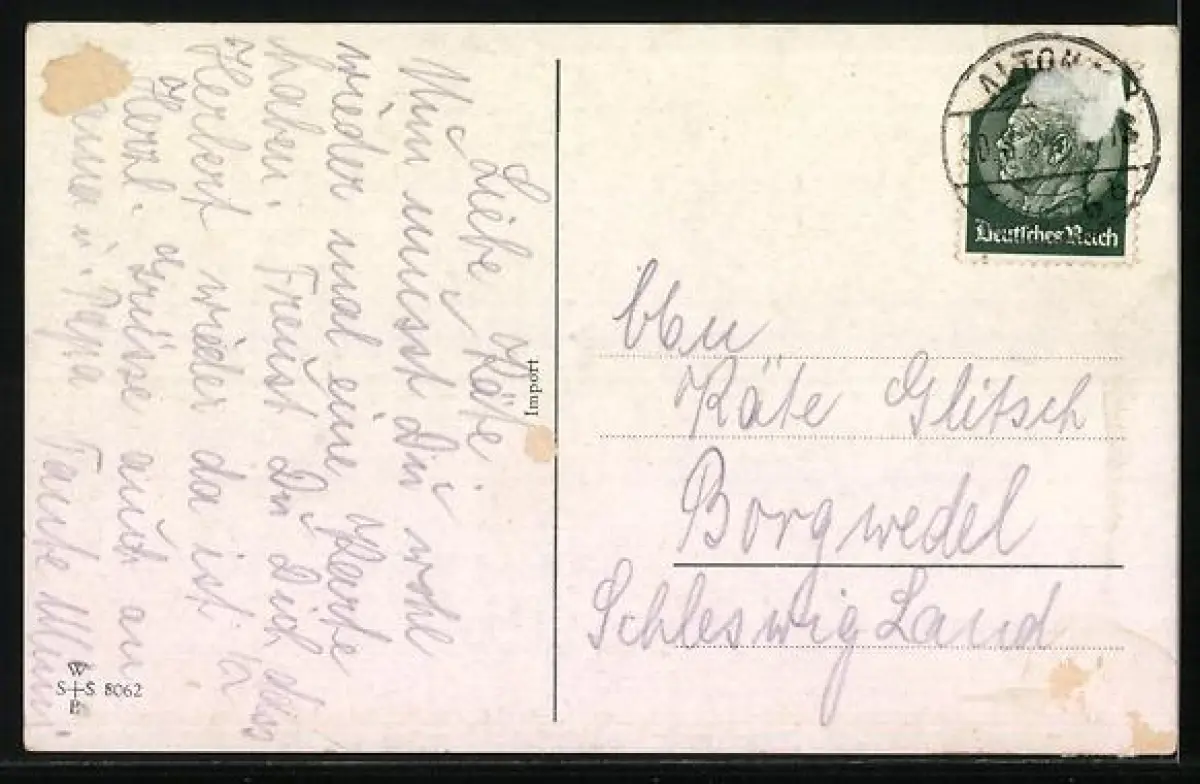 Liebe Käte
Nun musst Du wohl
wieder mal eine Karte
haben. Freust Du Dich, das
Herbert wieder da ist?
Herzl. Grüsse auch an
Mama u. Papa Tante Mimi.
Import
W
S+S 8062
B
ALTONA
Deutsches Reich
Käte Glitsch
Borgwedel
Schleswig Land